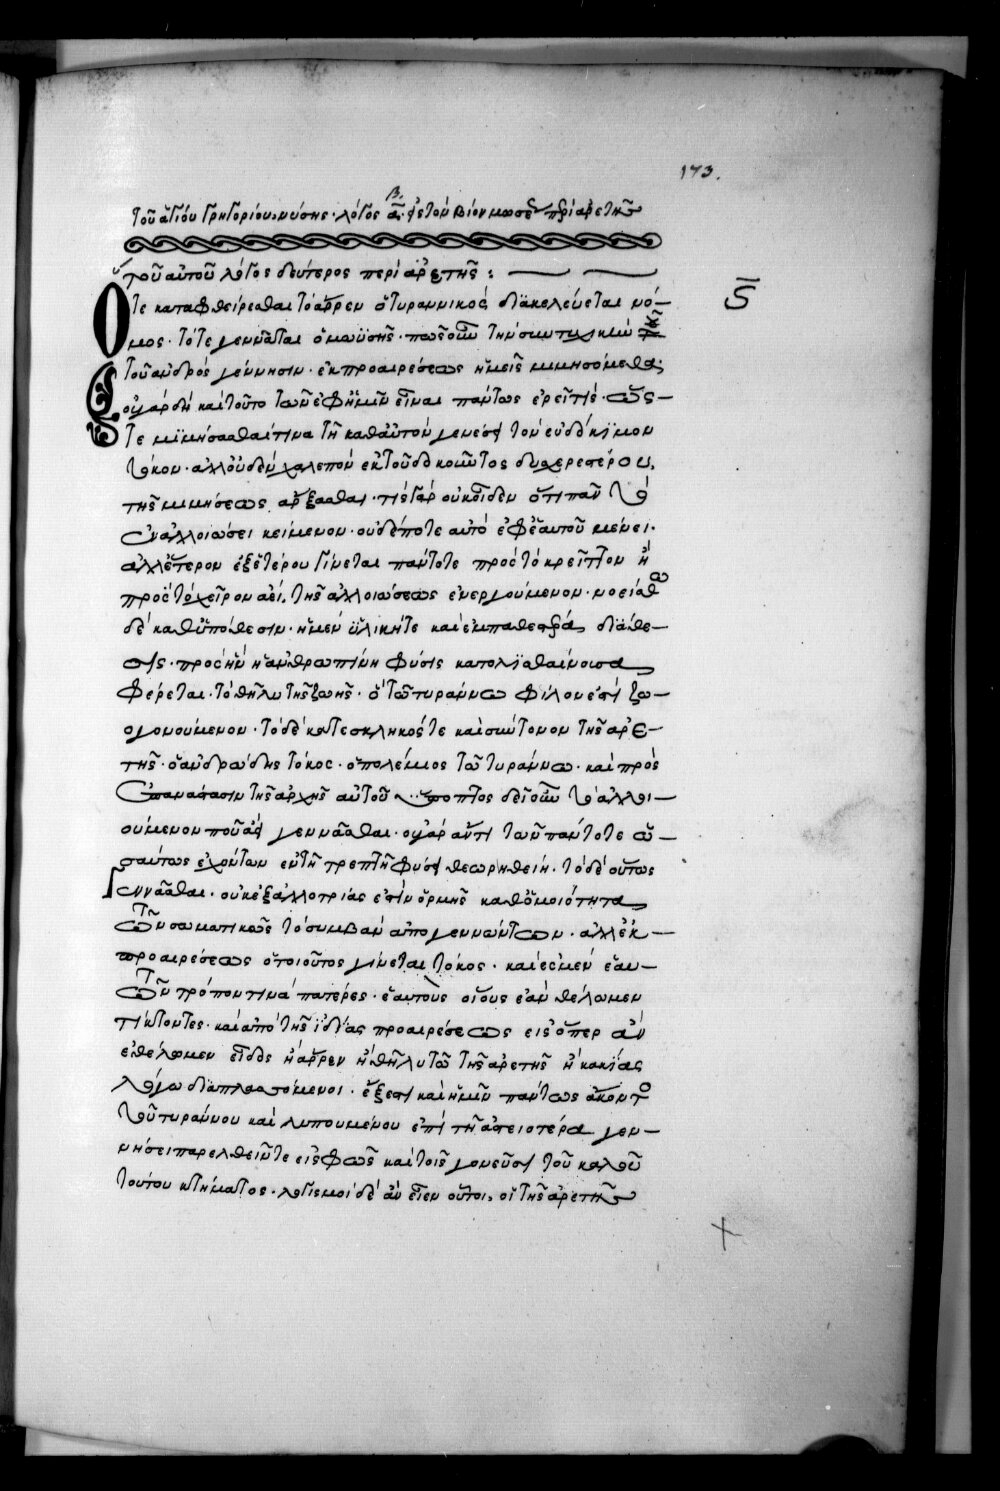 173.
β.
τοῦ ἁγίου γρηγορίου νύσης· λόγος α· εἰς τὸν βίον μωσέ περὶ ἀρετῆς
τοῦ αὐτοῦ λόγος δεύτερος περὶ ἀρετῆς :
Ὅτε καταφθείρεσθαι τὸ ἄρρεν ὁ τυραννικὸς διακελεύεται νό-
μος· τότε γεννᾶται ὁ μωϋσῆς· πῶς οὖν τὴν συντυχικὴν
τοῦ ἀνδρὸς γέννησιν· ἐκ προαιρέσεως ἡμεῖς μιμησόμεθα;
οὐ γὰρ δὴ καὶ τοῦτο τῶν ἐφ' ἡμῖν εἶναι πάντως ἐρεῖ τίς· ὥς-
τε μιμήσασθαί τινα τῇ καθ' αὑτὸν γενέσει τὸν εὐδόκιμον
τόκον· ἀλλ' οὐδὲν χαλεπὸν ἐκ τοῦ δοκοῦντος δυσχερεστέρου,
τῆς μιμήσεως ἄρξασθαι· τίς γὰρ οὐκ οἶδεν ὅτι πᾶν τὸ
ἐν ἀλλοιώσει κείμενον· οὐδέποτε αὐτὸ ἐφ' ἑαυτοῦ μένει·
ἀλλ' ἕτερον ἐξ ἑτέρου γίνεται πάντοτε πρὸς τὸ κρεῖττον ἢ
πρὸς τὸ χεῖρον ἀεὶ, τῆς ἀλλοιώσεως ἐνεργούμενον· νοείσθω
δὲ καθ' ὑπόθεσιν· ἡ μὲν ὑλικὴ τε καὶ ἐμπαθεστέρα διάθε-
σις· πρὸς ἣν ἡ ἀνθρωπίνη φύσις κατολισθαίνουσα
φέρεται· τὸ θῆλυ τῆς ζωῆς· ὃ τῷ τυράννω φίλον ἐστὶ ζω-
ογονούμενον· τὸ δὲ κατεσκληκός τε καὶ σύντονον τῆς ἀρε-
τῆς· ὁ ἀνδρώδης τόκος· ὁ πολέμιος τῷ τυράννω· καὶ πρὸς
ἐπανάστασιν τῆς ἀρχῆς αὐτοῦ ὕποπτος δεῖ οὖν τὸ ἀλλοι-
ούμενον που ἀεὶ γεννᾶσθαι· οὐ γὰρ ἄν τι τῶν πάντοτε ὡ-
σαύτως ἐχόντων ἐν τῇ τρεπτῇ φύσει θεωρηθείη· τὸ δὲ οὕτως
γεννᾶσθαι· οὐκ ἐξ ἀλλοτρίας ἐστὶν ὁρμῆς καθ' ὁμοιότητα
τῶν σωματικῶς τὸ συμβὰν ἀπογεννώντων· ἀλλ' ἐκ-
προαιρέσεως ὁ τοιοῦτος γίνεται τόκος· καὶ ἐσμὲν ἑαυ-
τῶν τρόπον τινὰ πατέρες· ἑαυτοὺς οἵους ἐὰν θέλωμεν
τίκτοντες· καὶ ἀπὸ τῆς ἰδίας προαιρέσεως εἰς ὅπερ ἂν
ἐθέλωμεν εἶδος ἢ ἄρρεν ἢ θῆλυ τῷ τῆς ἀρετῆς ἢ κακίας
λόγω διαπλασσόμενοι· ἔξεστι καὶ ἡμῖν πάντως ἄκοντος
τοῦ τυράννου καὶ λυπουμένου ἐπὶ τῇ ἀστειοτέρα γεν-
νήσει παρελθεῖν τε εἰς φῶς καὶ τοῖς γονεῦσι τοῦ καλοῦ
τούτου κτήματος· λογισμοὶ δὲ ἂν εἶεν οὗτοι, οἱ τῆς ἀρετῆς